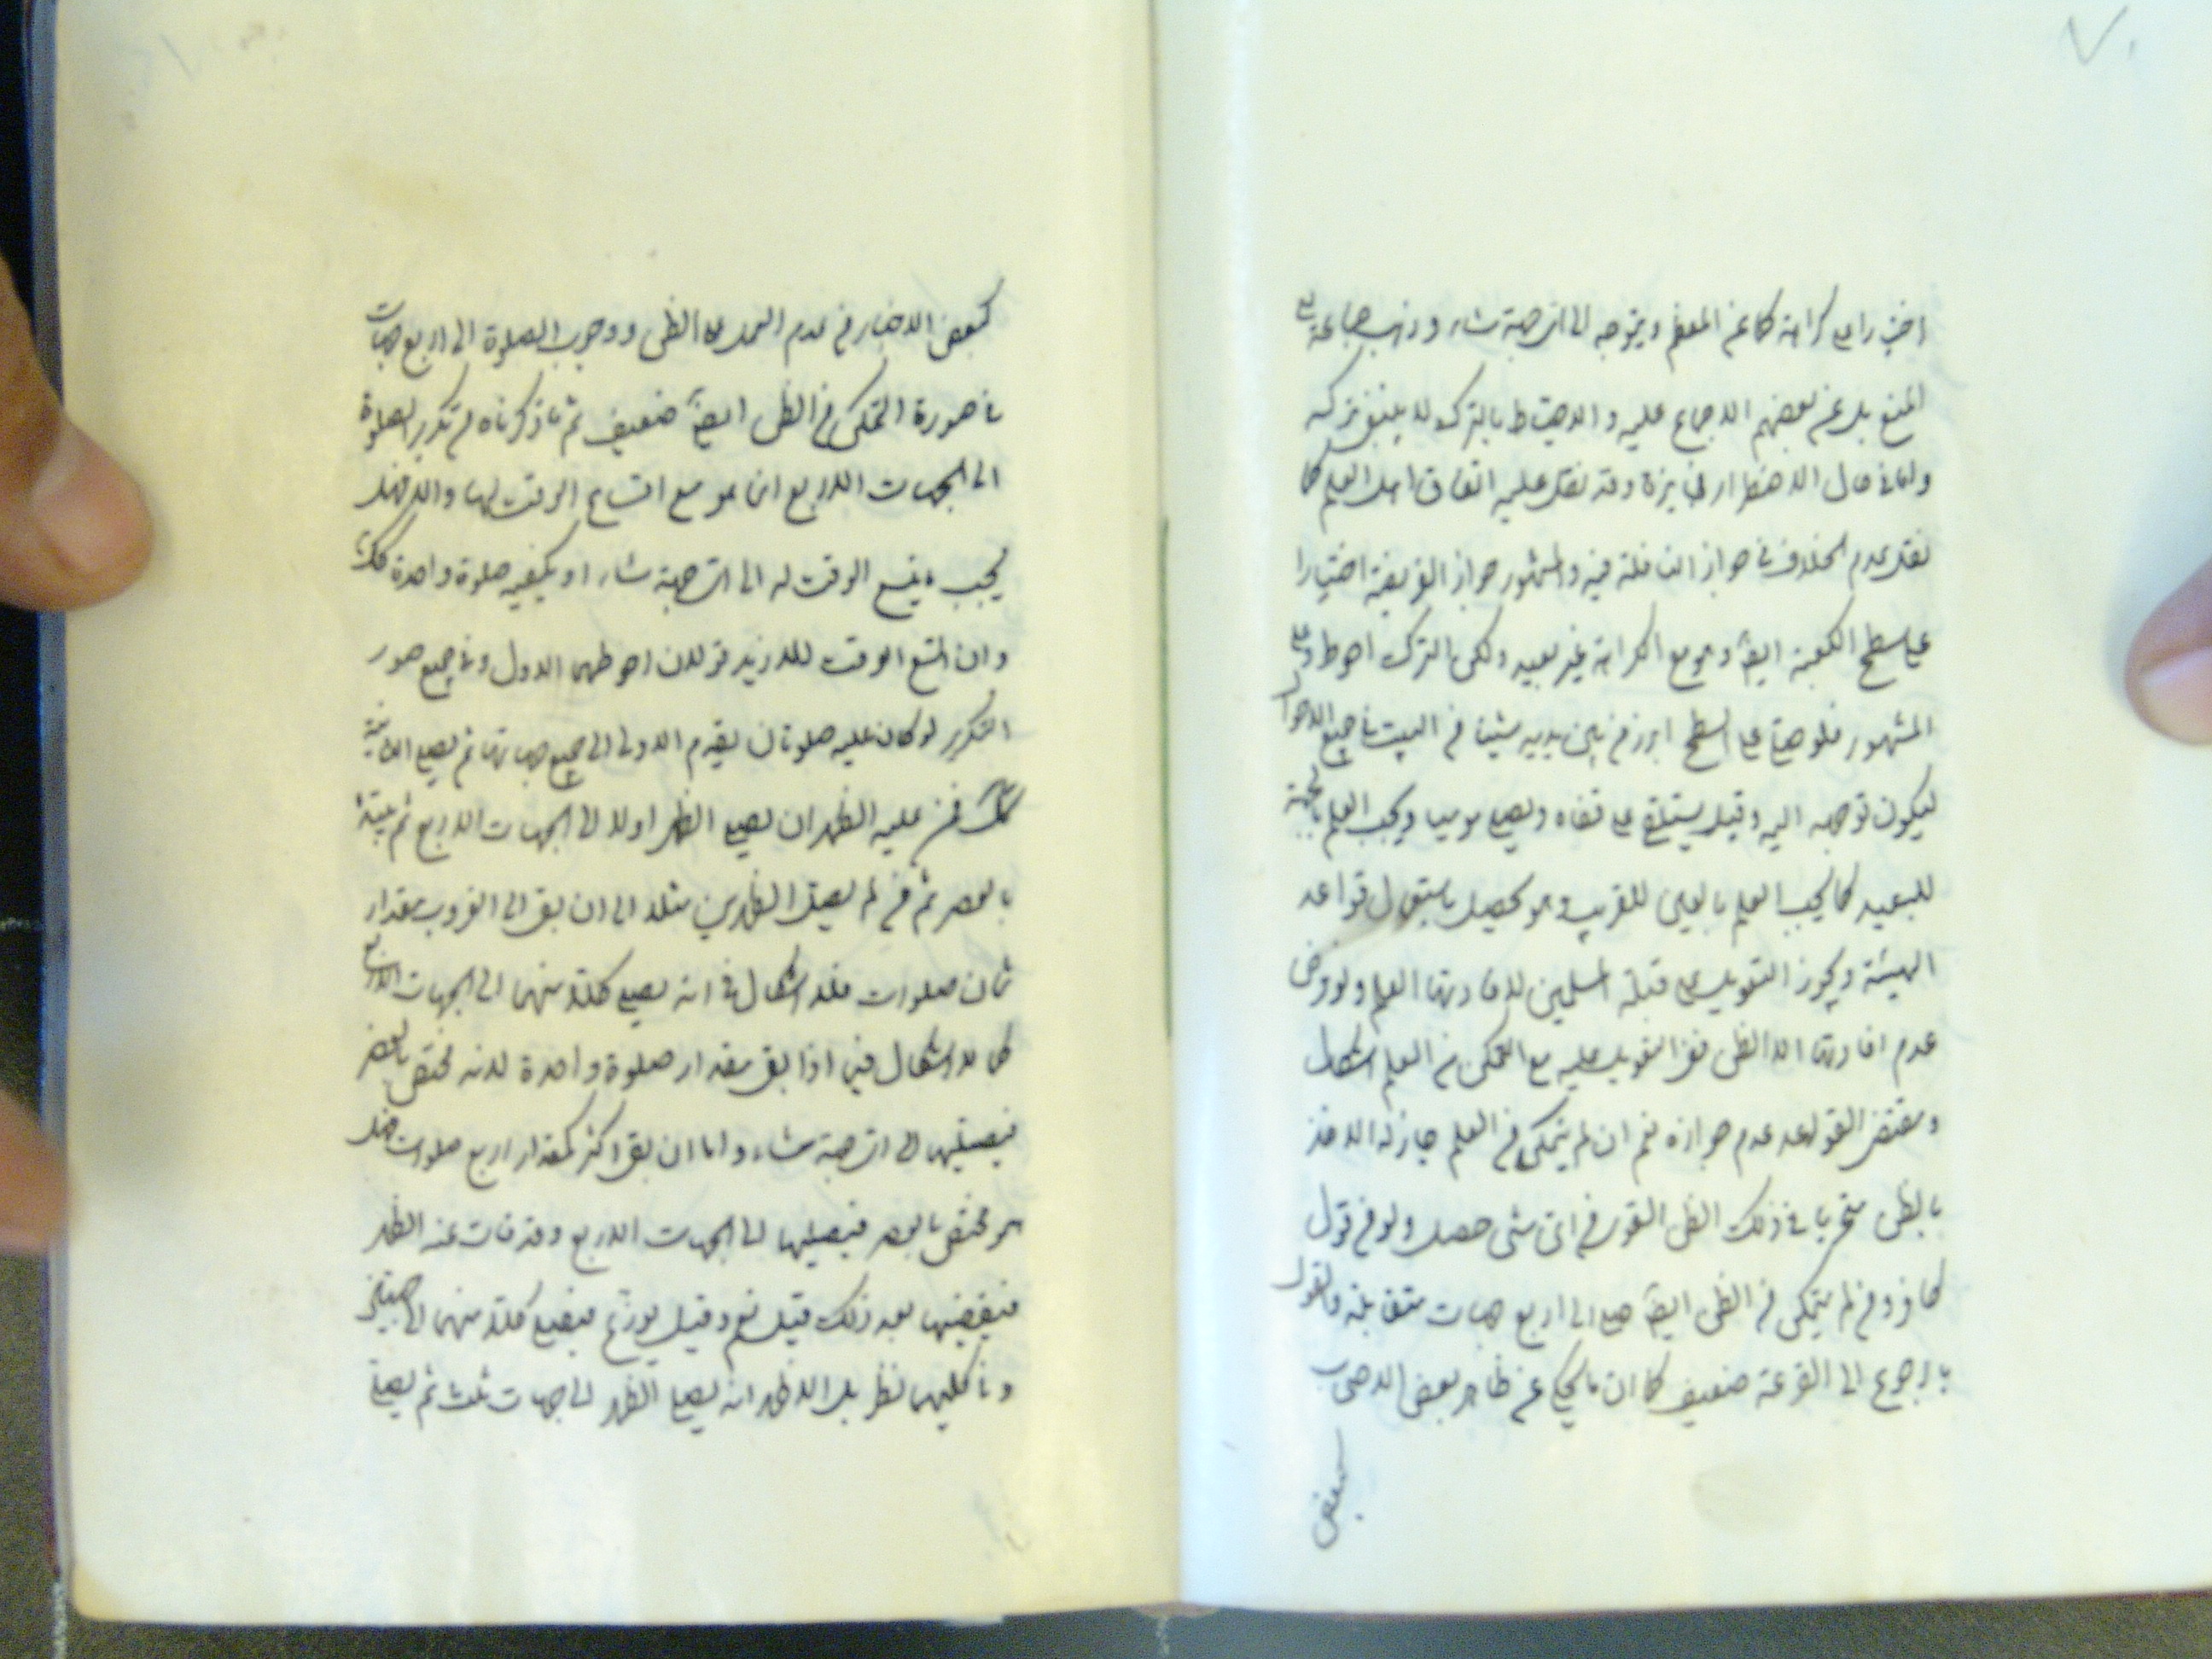 اختيارا على كراهة كما عن المعظم ويتوجه الى اى جهة شاء وذهب جماعة الى
المنع بل عن بعضهم الاجماع عليه والاحتياط بالترك لا ينبغى تركه
واما فى حال الاضطرار فجايزة وقد نقل عليه اتفاق اهل العلم كما
نقل عدم الخلاف فى جواز النافلة فيه والمشهور جواز الفريضة اختيارا
على سطح الكعبة ايضا وهو مع الكراهة غير بعيد ولكن الترك احوط وعلى
المشهور فلو صلى على السطح ابرز من بين يديه شيئا من البيت فى جميع الاحوال
ليكون توجهه اليه وقيل يستلقى على قفاه ويصلى موميا ويجب العلم بالجهة
للبعيد كما يجب العلم بالعين للقريب وهو يحصل باستعمال قواعد
الهيئة ويجوز التعويل على قبلة المسلمين لافادتها العلم ولو فرض
عدم افادتها الا الظن ففى التعويل عليه مع التمكن من العلم اشكال
ومقتضى القواعد عدم جوازه نعم ان لم يتمكن من العلم جاز له الاخذ
بالظن متحريا فى ذلك الظن القوى من اى شىء حصل ولو من قول
كافر ومن لم يتمكن من الظن ايضا صلى الى اربع جهات متقابلة والقول
بالرجوع الى القرعة ضعيف كما ان ما يحكى عن ظاهر بعض الاصحاب
كبعض
كبعض الاخبار من عدم العمل بالظن ووجوب الصلوة الى اربع جهات
فى صورة التمكن من الظن ايضا ضعيف ثم ما ذكرناه من تكرير الصلوة
الى الجهات الاربع انما هو مع اتساع الوقت لها والا فهل
يجب ما يتسع الوقت له الى اى جهة شاء او يكفيه صلوة واحدة كذلك
وان اتسع الوقت للازيد قولان احوطهما الاول وفى جميع صور
التكرير لو كان عليه صلوتان يقدم الاولى الى جميع جهاتها ثم يصلى الثانية
كذلك فمن عليه الظهران يصلى الظهر اولا الى الجهات الاربع ثم يبتدئ
بالعصر ثم من لم يصل الظهرين مثلا الى ان بقى الى الغروب مقدار
ثمان صلوات فلا اشكال فى انه يصلى كلا منهما الى الجهات الاربع
كما لا اشكال فيما اذا بقى مقدار صلوة واحدة لانه مختص بالعصر
فيصليها الى اى جهة شاء واما ان بقى اكثر كمقدار اربع صلوات فهل
هو مختص بالعصر فيصليها الى الجهات الاربع وقد فات عنه الظهر
فيقضيها بعد ذلك قيل نعم وقيل يوزع فيصلى كلا منهما الى جهتين
وفى كليهما نظر بل الاظهر انه يصلى الظهر الى جهات ثلث ثم يصلى